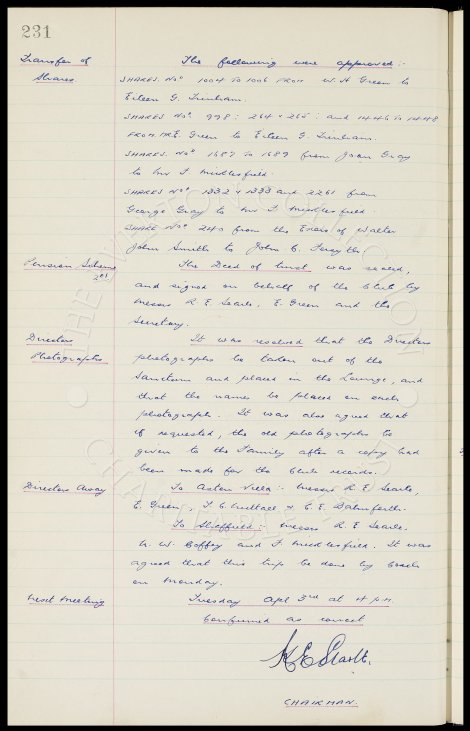 231
Transfer of The following were approved:-
Shares SHARES. Nos 1004 to 1006 FROM W. H Green to
Eileen G. Trenham.
SHARES Nos 998: 264 & 265: and 1446 to 1448
FROM MR E. Green to Eileen G. Trenham.
SHARES. Nos 1687 to 1689 from Joan Gray
to Mr F Micklesfield.
SHARES Nos 1332 & 1333 and 2261 from
George Gray to Mr F Micklesfield.
SHARE No 240 from the Exors of Walter
John Smith to John C. Forsyth.
Pension Scheme The Deed of trust was sealed,
and signed on behalf of the Club by
Messrs R. E. Searle, E. Green and the
Secretary.
Directors It was resolved that the Directors
Photographs photographs be taken out of the
Sanctum and placed in the Lounge, and
that the names be placed on each
photograph. It was also agreed that
if requested, the old photographs be
given to the Family after a copy had
been made for the Clubs records.
Directors Away To Aston Villa:- Messrs R. E. Searle,
E. Green, T. C. Nuttall & C. E. Danforth.
To Sheffield:- Messrs R E Searle.
W. W. Coffey and F. Micklesfield. It was
agreed that this trip be done by Coach
on Monday.
Next Meeting Tuesday Apl 3rd at 4 p.m.
Confirmed as correct
R E Searle.
CHAIRMAN.
THE WATSON COLLECTION